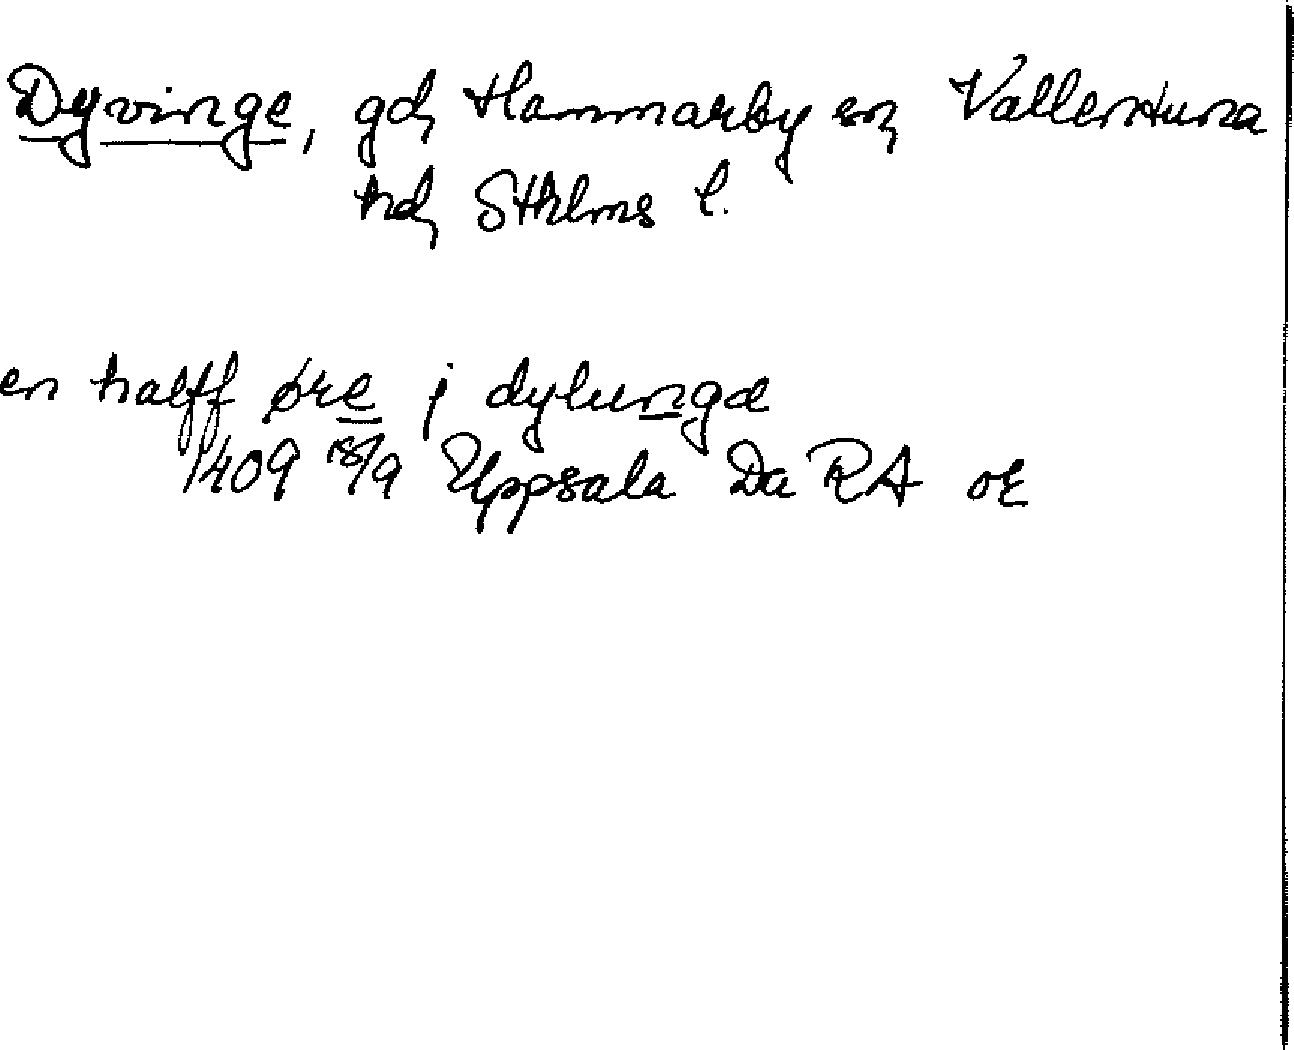 Dyvinge, gd, Hammarby sn, Vallentuna
hd, Sthlms l.
en halff øre j dylunga
1409 18/9 Uppsala Da RA or